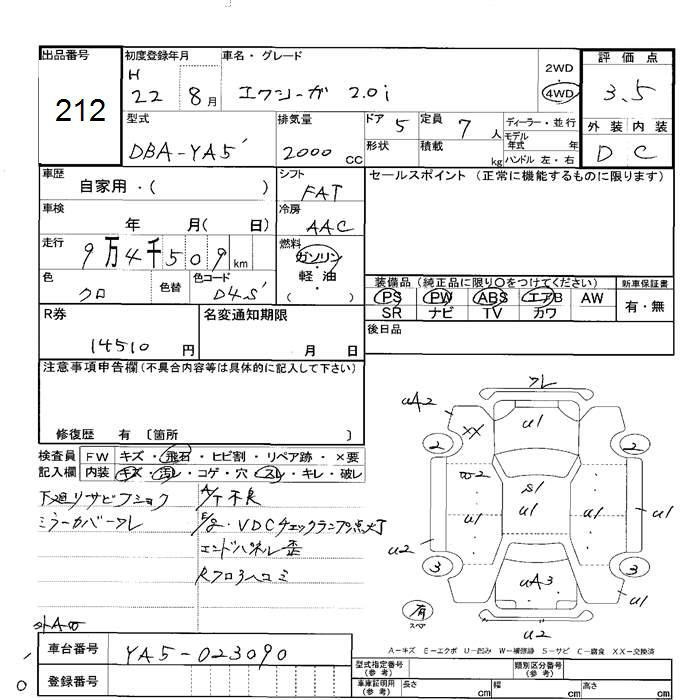 出品番号 初度登録年月 車名・グレード 評価点
212
H 22 8月 エクシーガ 2.0i 2WD 4WD 3.5
型式 排気量 ドア 5 定員 7人 ディーラー・並行 外装 内装
DBA-YA5 2000cc 形状 積載 kg モデル年式 年 ハンドル 左・右 D C
車歴 自家用・( ) シフト FAT セールスポイント (正常に機能するものに限ります)
車検 年 月( 日) 冷房 AAC
走行 9万4千509km 燃料 ガソリン・軽油 ( )
色 クロ 色替 色コード D4S
装備品 (純正品に限り〇をつけてください) 新車保証書
PS PW ABS エアB AW 有・無
SR ナビ TV カワ
R券 14510円 名変通知期限 月 日 後日品
注意事項申告欄(不具合内容等は具体的に記入して下さい)
修復歴 有 〔箇所 〕
検査員 FW キズ・飛石・ヒビ割・リペア跡・×要
記入欄 内装 キズ・汚レ・コゲ・穴・スレ・キレ・破レ
下廻リサビフショク A/T不良
ミラーカバーワレ E/g・VDCチェックランプ点灯
エンドパネル歪
Rフロアヘコミ
ワレ
uA2 u1
XX 2 2
w2 s1
u1 u1 u1 u1
u2
3 3
uA3 u1
有 スペア u2
A-キズ E-エクボ U-凹み W-補修跡 S-サビ C-腐食 XX-交換済
車台番号 YA5-023090
登録番号
型式指定番号(参考) 類別区分番号(参考)
車庫証明用(参考) 長さ cm 幅 cm 高さ cm